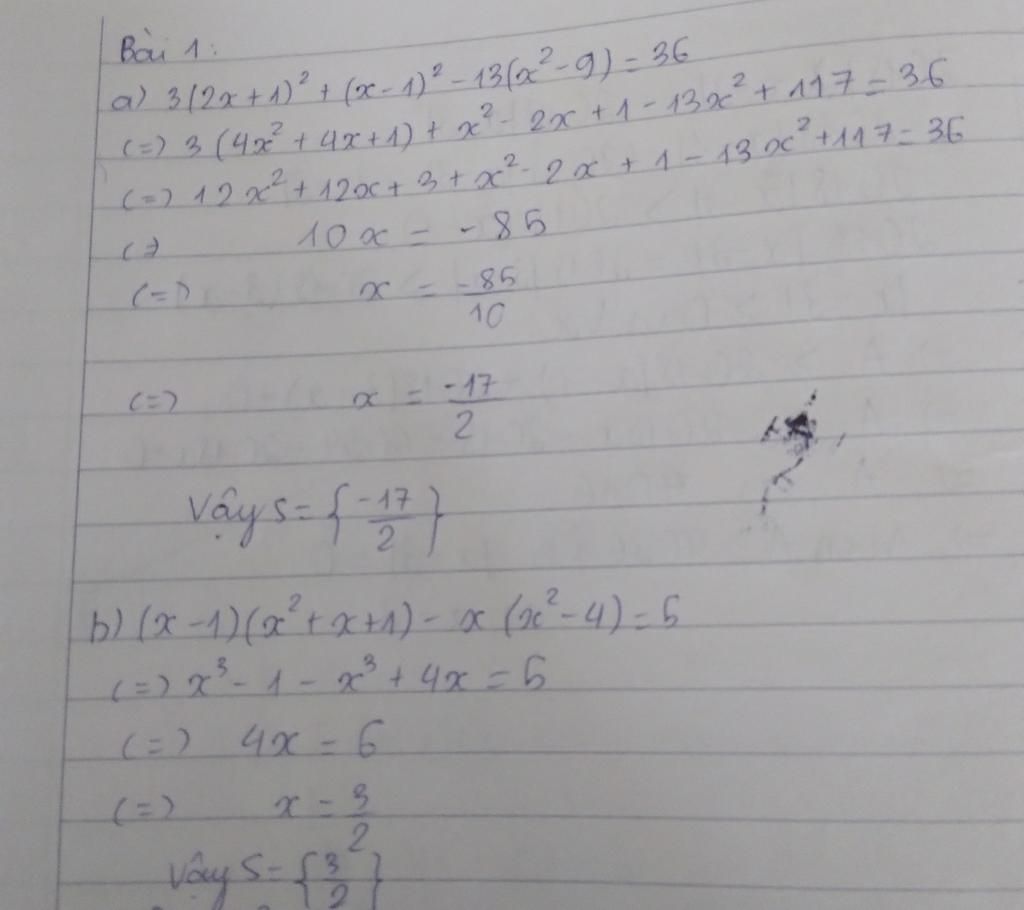 Bài 1:
a) 3(2x+1)² + (x-1)² - 13(x² - 9) = 36
(=) 3(4x² + 4x + 1) + x² - 2x + 1 - 13x² + 117 = 36
(=) 12x² + 12x + 3 + x² - 2x + 1 - 13x² + 117 = 36
(=) 10x = -85
(=) x = -85/10
(=) x = -17/2
Vậy S = {-17/2}
b) (x-1)(x² + x + 1) - x(x² - 4) = 5
(=) x³ - 1 - x³ + 4x = 5
(=) 4x = 6
(=) x = 3/2
Vậy S = {3/2}